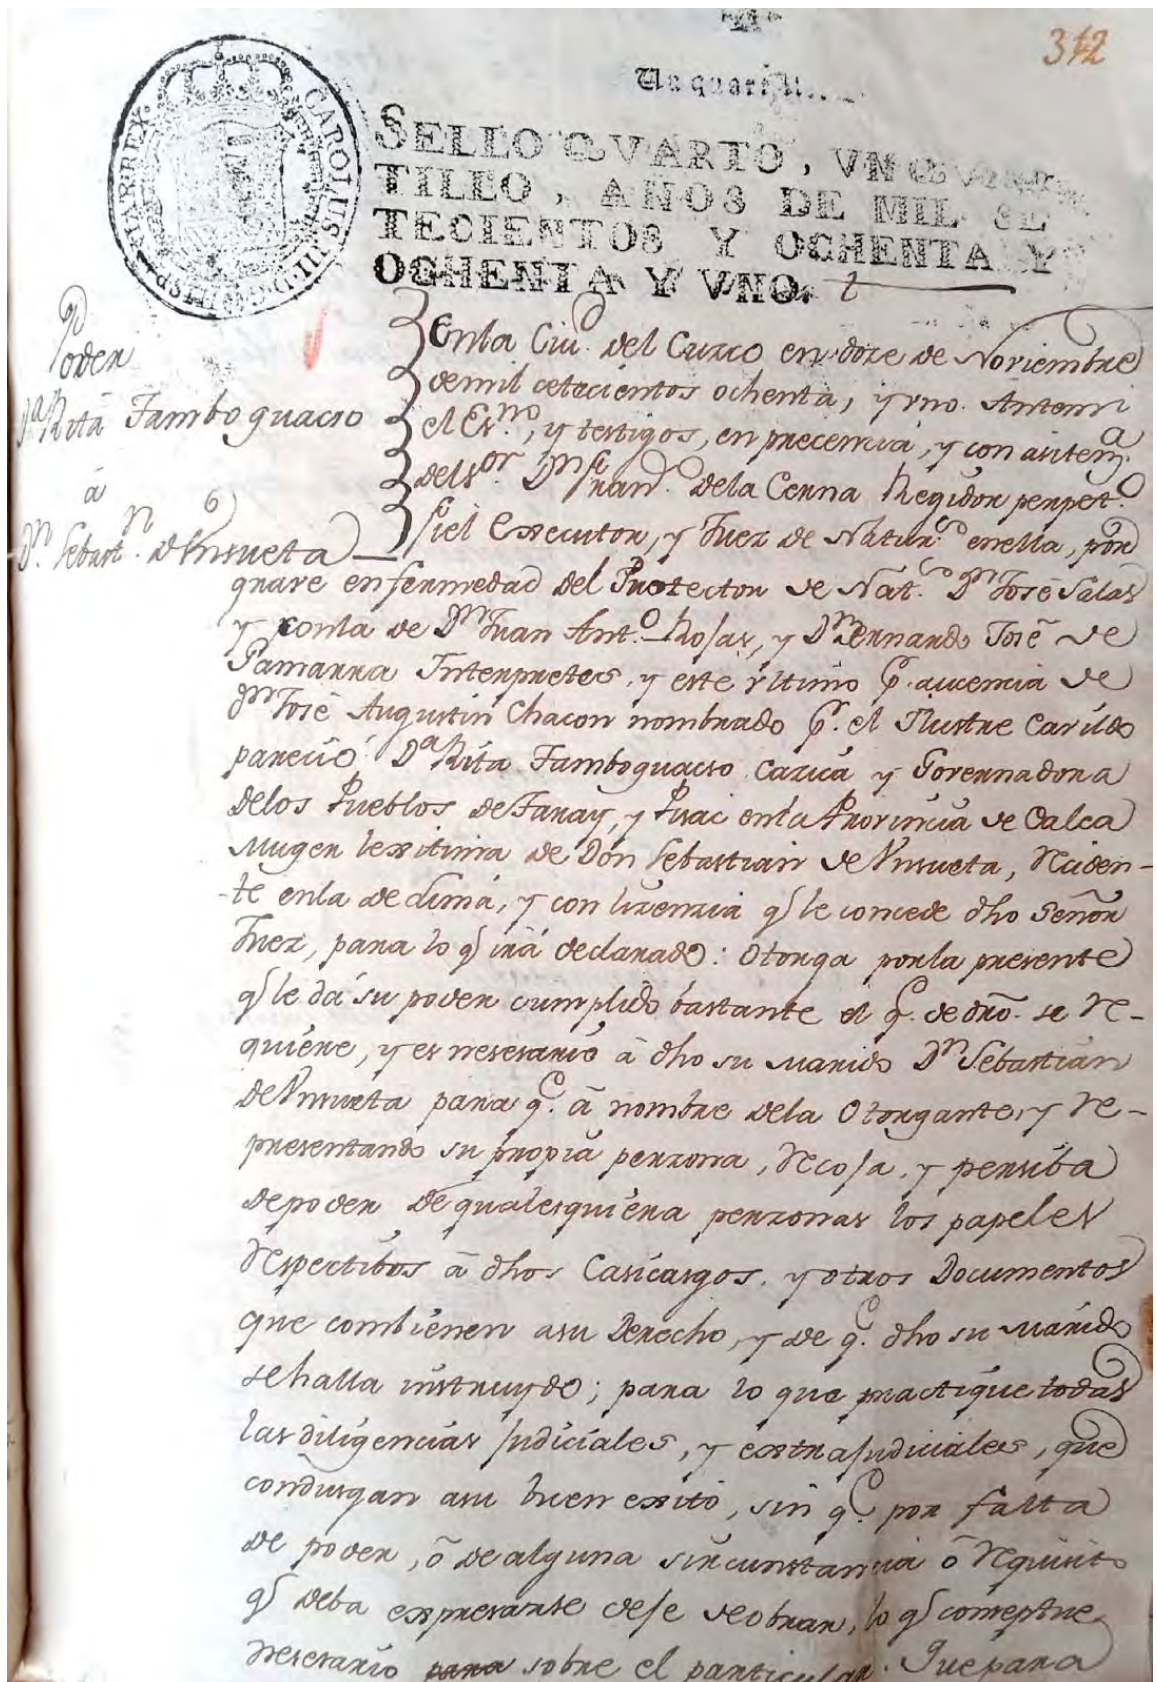 312
Un quartill
SELLO QVARTO, VN QVAR
TILLO, AÑOS DE MIL SE
TECIENTOS Y OCHENTA Y
OCHENTA Y VNO.
CAROLUS III D.G. HISPANIAR REX
Poder
Dª Rita Tamboguacso
â
Dn Sebastn de Unsueta
Enla Ciud. del Cuzco en doze de Noviembre
demil cetecientos ochenta, y vno. Antemi
el Esno, y testigos, en precencia, y con asitena.
del Sor. Dn Franco. dela Cerna Regidor perpeto.
fiel Executor, y Juez de Naturs. enella, por
grave enfermedad del Protector de Nats. Dn José Salas
y conla de Dn Juan Anto. Rosas, y Dn Bernando José de
Pamarra Interpretes, y este vltimo pr. aucencia de
Dn José Augustin Chacon nombrado pr. el Ilustre Cavildo
pareció Dª Rita Tamboguacso Cazica y Governadora
delos Pueblos de Taray, y Pisac enla Provincia de Calca
Muger lexitima de Don Sebastian de Unsueta, reciden-
-te enla de Lima, y con lizenzia q le concede dho Señor
Juez, para lo q irá declarado: Otorga porla presente
q le dá su poder cumplido bastante el q. de dro. se re-
quiere, y es nesesario â dho su marido Dn Sebastian
de Unsueta para q. â nombre dela Otorgante, y re-
presentando su propia perzona, recoja, y persiba
depoder de qualesquiera perzonas los papeles
respectibos â dhos Casicasgos, y otros Documentos
que combienen asu Derecho, y de q. dho su marido
sehalla instruydo; para lo que practique todas
las diligencias judiciales, y extrajudiciales, que
condusgan asu buen exsito, sin q. por falta
de poder, ô de alguna sircunstancia ô requisito
q deba expresarse deje deobrar, lo q conseptue
nesesario para sobre el particular. Que para